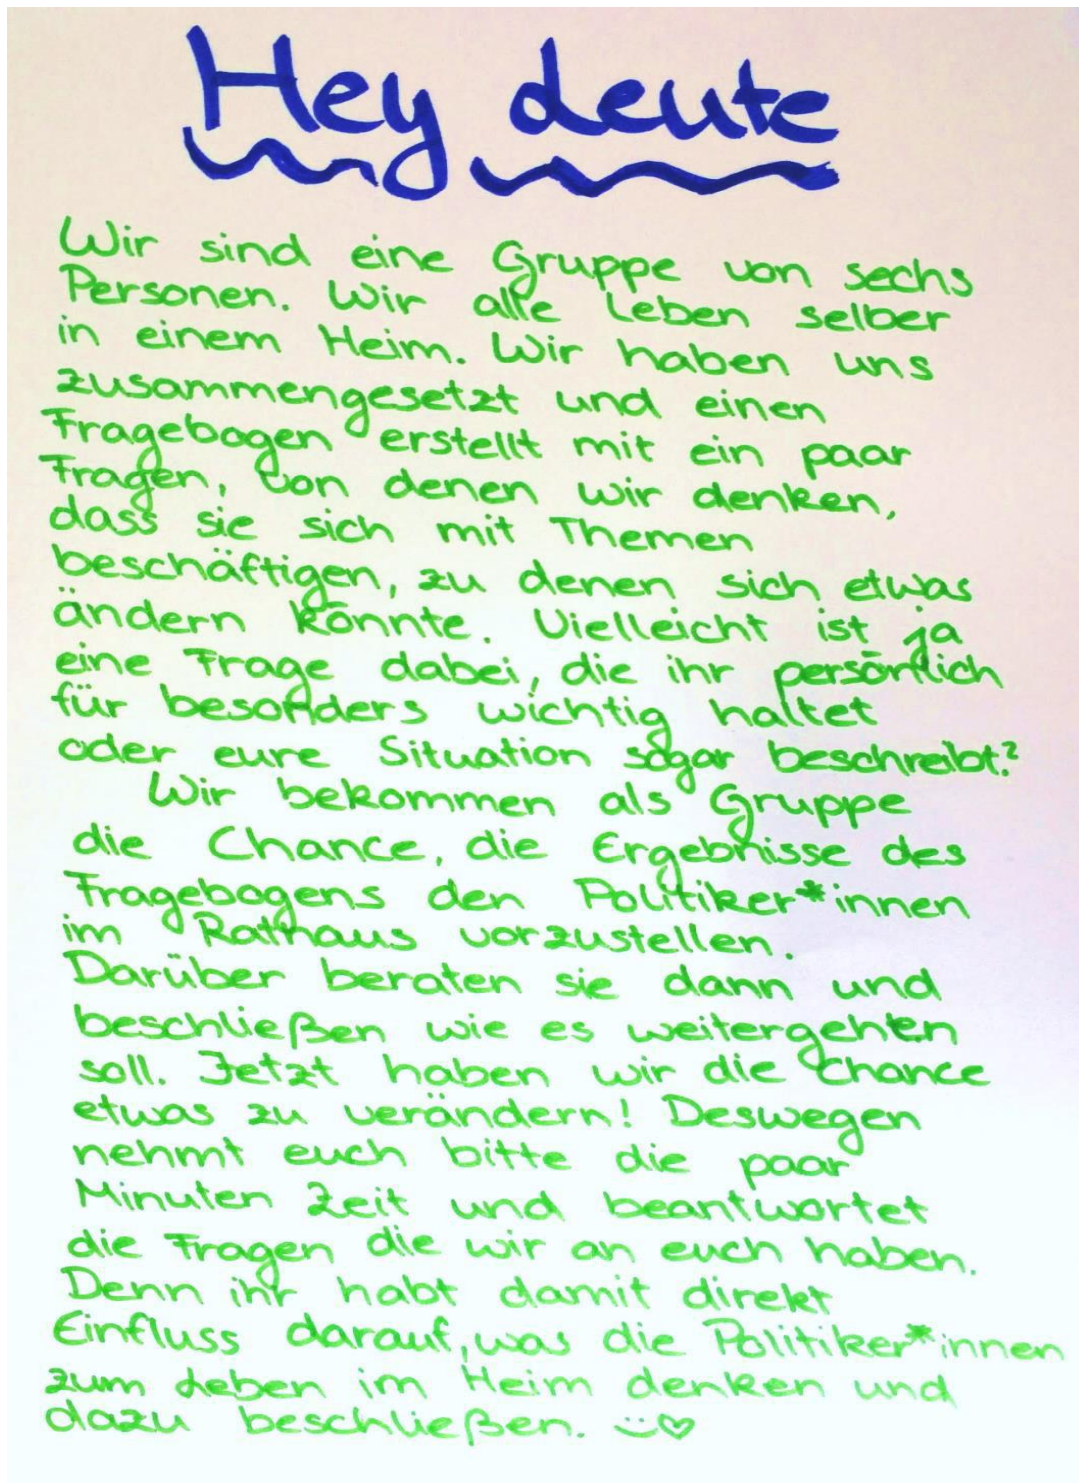 Hey Leute
Wir sind eine Gruppe von sechs
Personen. Wir alle Leben selber
in einem Heim. Wir haben uns
zusammengesetzt und einen
Fragebogen erstellt mit ein paar
Fragen, von denen wir denken,
dass sie sich mit Themen
beschäftigen, zu denen sich etwas
ändern könnte. Vielleicht ist ja
eine Frage dabei, die ihr persönlich
für besonders wichtig haltet
oder eure Situation sogar beschreibt.?
Wir bekommen als Gruppe
die Chance, die Ergebnisse des
Fragebogens den Politiker*innen
im Rathaus vorzustellen.
Darüber beraten sie dann und
beschließen wie es weitergehen
soll. Jetzt haben wir die Chance
etwas zu verändern! Deswegen
nehmt euch bitte die paar
Minuten Zeit und beantwortet
die Fragen die wir an euch haben.
Denn ihr habt damit direkt
Einfluss darauf, was die Politiker*innen
zum Leben im Heim denken und
dazu beschließen. :) ♡